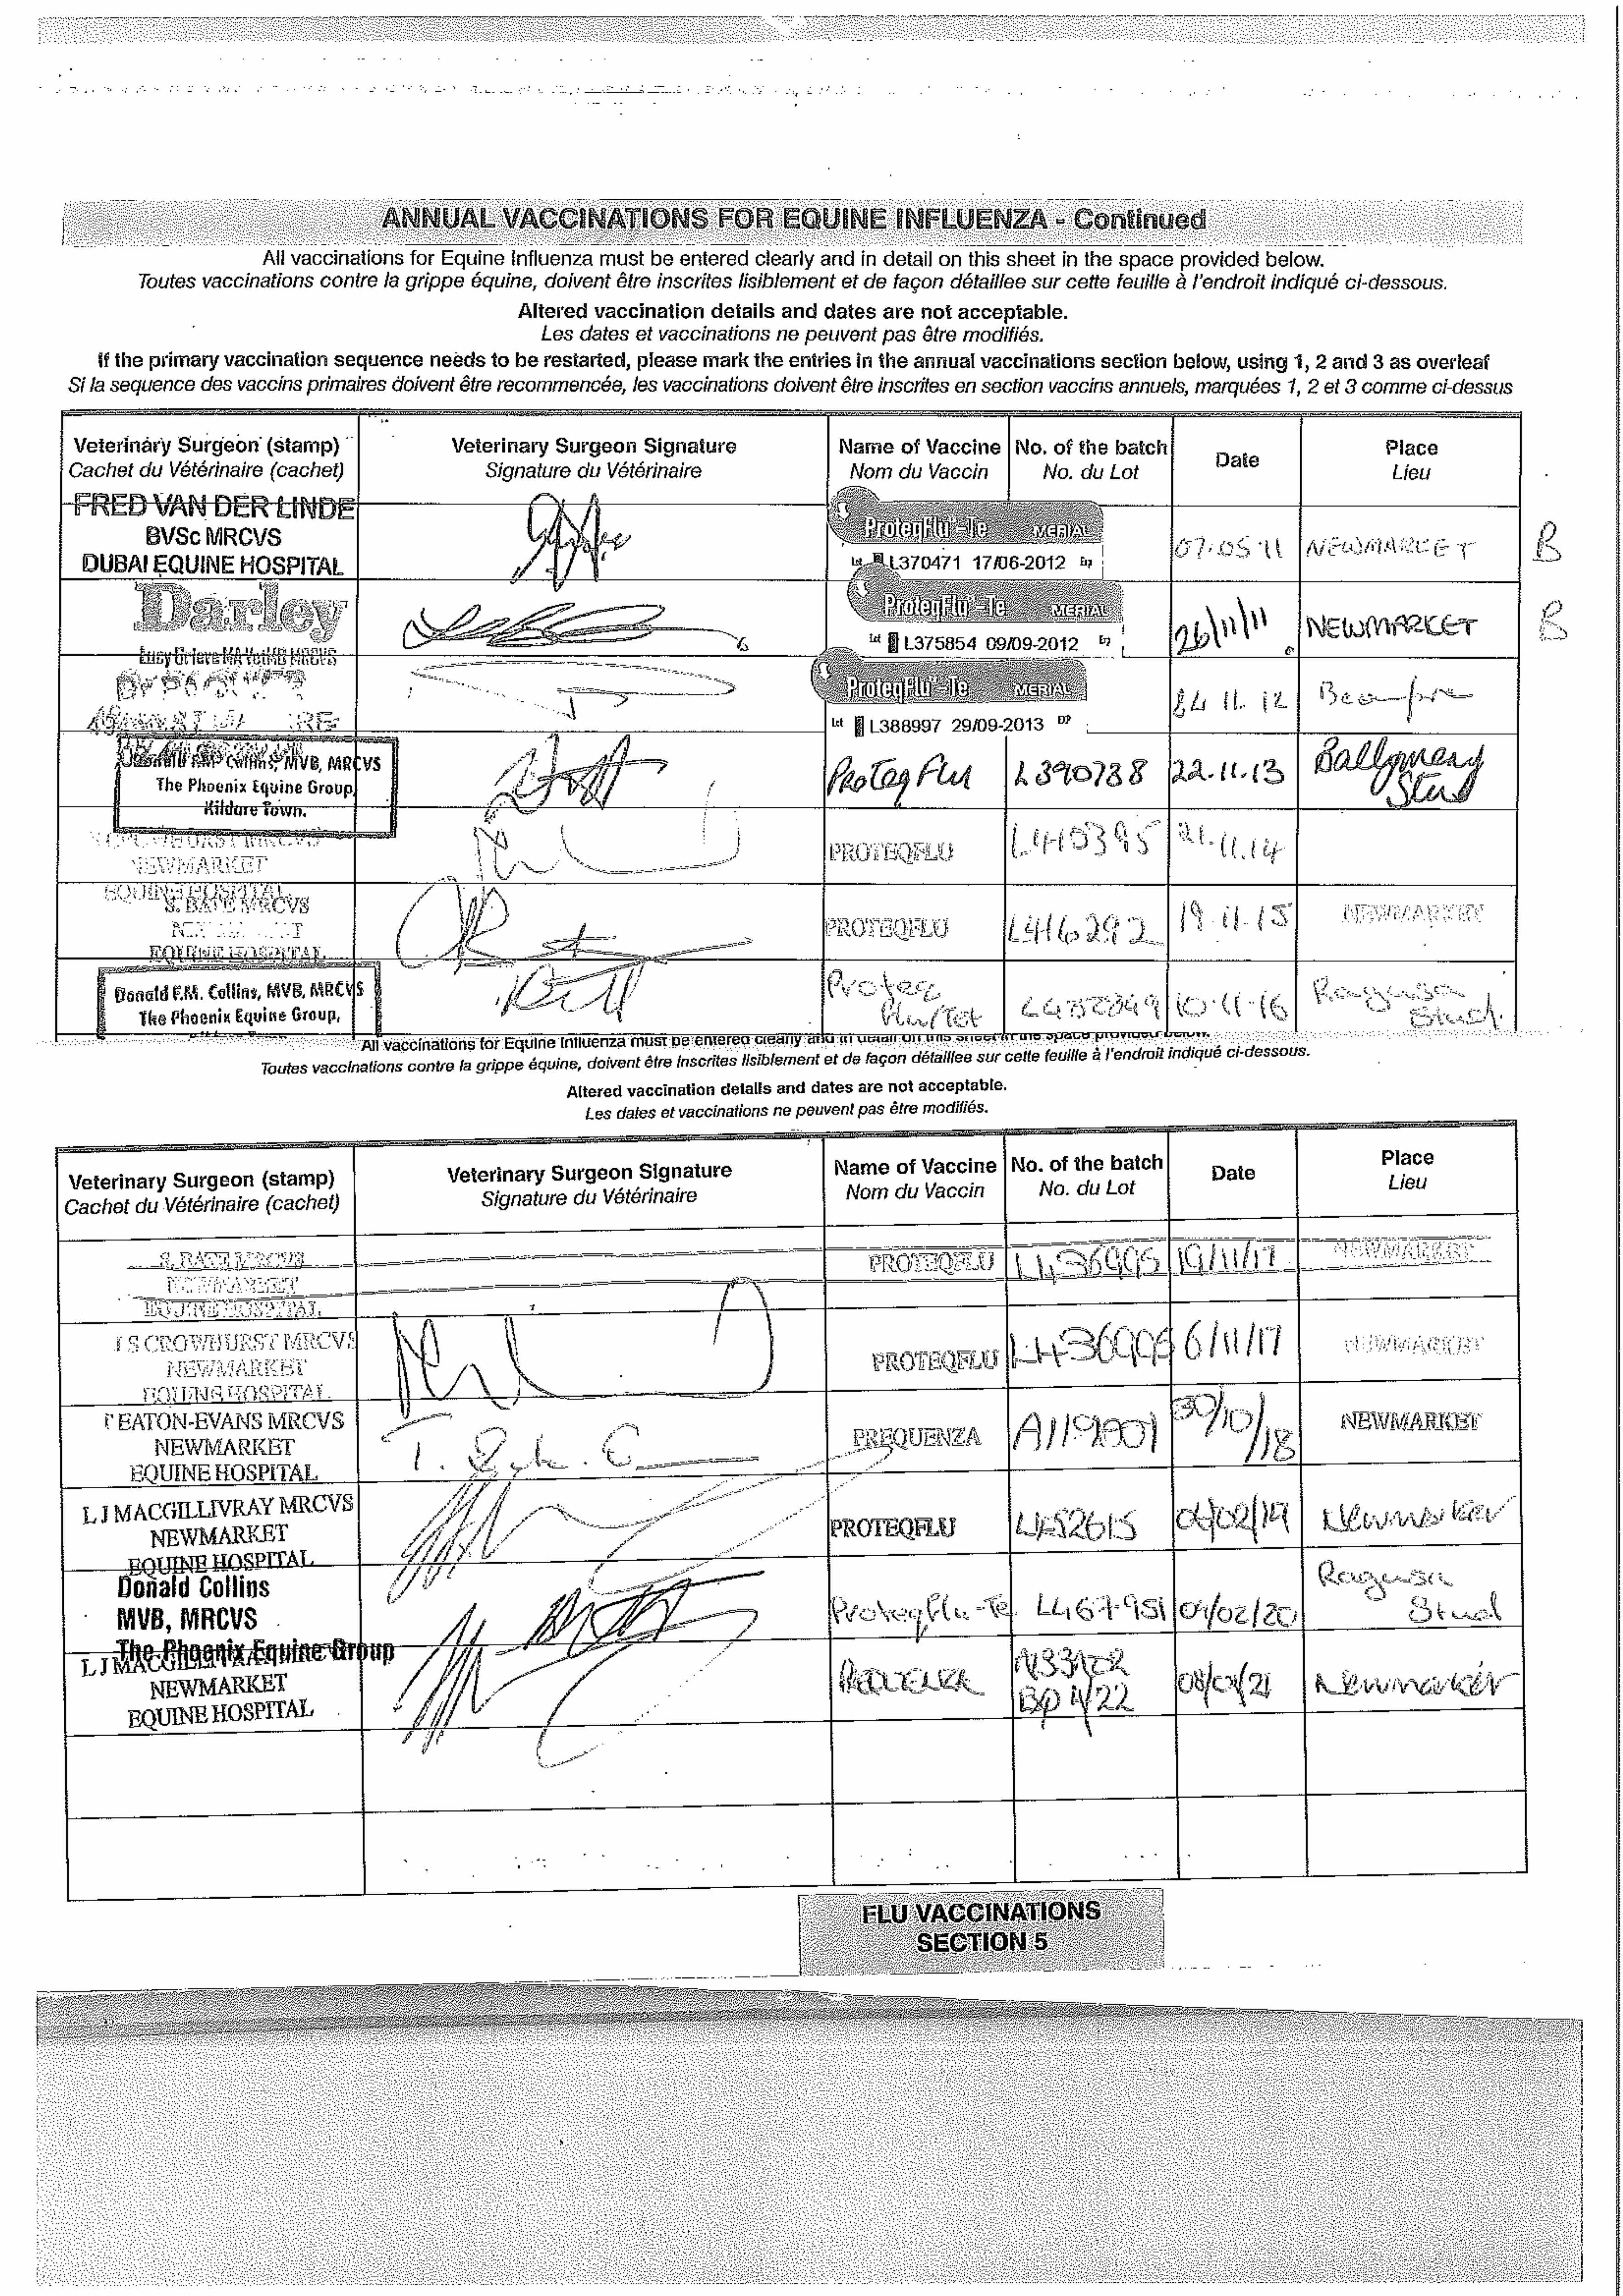 ANNUAL VACCINATIONS FOR EQUINE INFLUENZA - Continued
All vaccinations for Equine Influenza must be entered clearly and in detail on this sheet in the space provided below.
Toutes vaccinations contre la grippe équine, doivent être inscrites lisiblement et de façon détaillee sur cette feuille à l'endroit indiqué ci-dessous.
Altered vaccination details and dates are not acceptable.
Les dates et vaccinations ne peuvent pas être modifiés.
If the primary vaccination sequence needs to be restarted, please mark the entries in the annual vaccinations section below, using 1, 2 and 3 as overleaf
Si la sequence des vaccins primaires doivent être recommencée, les vaccinations doivent être inscrites en section vaccins annuels, marquées 1, 2 et 3 comme ci-dessus
Veterinary Surgeon (stamp) Veterinary Surgeon Signature Name of Vaccine No. of the batch Date Place
Cachet du Vétérinaire (cachet) Signature du Vétérinaire Nom du Vaccin No. du Lot Lieu
FRED VAN DER LINDE
BVSc MRCVS
DUBAI EQUINE HOSPITAL
ProteqFlu-Te MERIAL
Lot L370471 17/06-2012 07.05.11 NEWMARKET B
Darley
Lucy Grieve MA VetMB MRCVS
ProteqFlu-Te MERIAL
Lot L375854 09/09-2012 26/11/11 NEWMARKET B
ProteqFlu-Te MERIAL
Lot L388997 29/09-2013 11.12
Collins, MVB, MRCVS
The Phoenix Equine Group,
Kildare Town.
ProteqFlu L390738 22.11.13 Ballymany
Stud
NEWMARKET
EQUINE HOSPITAL
PROTEQFLU 21.11.14
S. BATE MRCVS
EQUINE HOSPITAL
PROTEQFLU L416292 19.11.15 NEWMARKET
Donald F.M. Collins, MVB, MRCVS
The Phoenix Equine Group,
Proteq
Flu/Tet 10.11.16 Ragusa
Stud.
All vaccinations for Equine Influenza must be entered clearly and in detail on this sheet in the space provided below.
Toutes vaccinations contre la grippe équine, doivent être inscrites lisiblement et de façon détaillee sur cette feuille à l'endroit indiqué ci-dessous.
Altered vaccination details and dates are not acceptable.
Les dates et vaccinations ne peuvent pas être modifiés.
Veterinary Surgeon (stamp) Veterinary Surgeon Signature Name of Vaccine No. of the batch Date Place
Cachet du Vétérinaire (cachet) Signature du Vétérinaire Nom du Vaccin No. du Lot Lieu
S. BATE MRCVS
NEWMARKET
EQUINE HOSPITAL
PROTEQFLU L436995 19/11/17 NEWMARKET
S CROWHURST MRCVS
NEWMARKET
EQUINE HOSPITAL
PROTEQFLU L436995 6/11/17 NEWMARKET
EATON-EVANS MRCVS
NEWMARKET
EQUINE HOSPITAL
PREQUENZA 30/10/18 NEWMARKET
L J MACGILLIVRAY MRCVS
NEWMARKET
EQUINE HOSPITAL
PROTEQFLU L452615 Newmarket
Donald Collins
MVB, MRCVS
The Phoenix Equine Group
ProteqFlu-Te L467951 Ragusa
Stud
L J MACGILLIVRAY
NEWMARKET
EQUINE HOSPITAL
Newmarket
FLU VACCINATIONS
SECTION 5